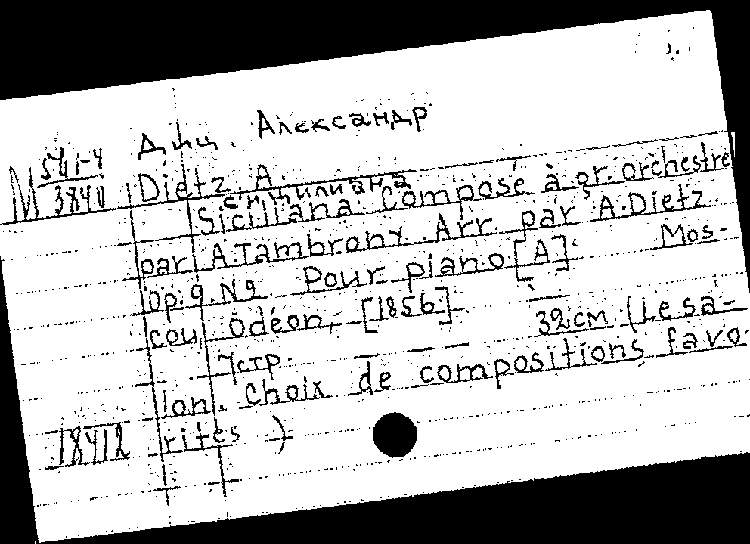 Диц. Александр
М 541-4
3840
Dietz, A.
Сицилиана
Siciliana. Composé à gr. orchestre
par A. Tambrony. Arr. par A. Dietz.
Op. 9 № Pour piano [A]. Mos-
cou, Odéon, [1856].
7стр. 32 см (Le sa-
lon. Choix de compositions favo-
rites)
18412